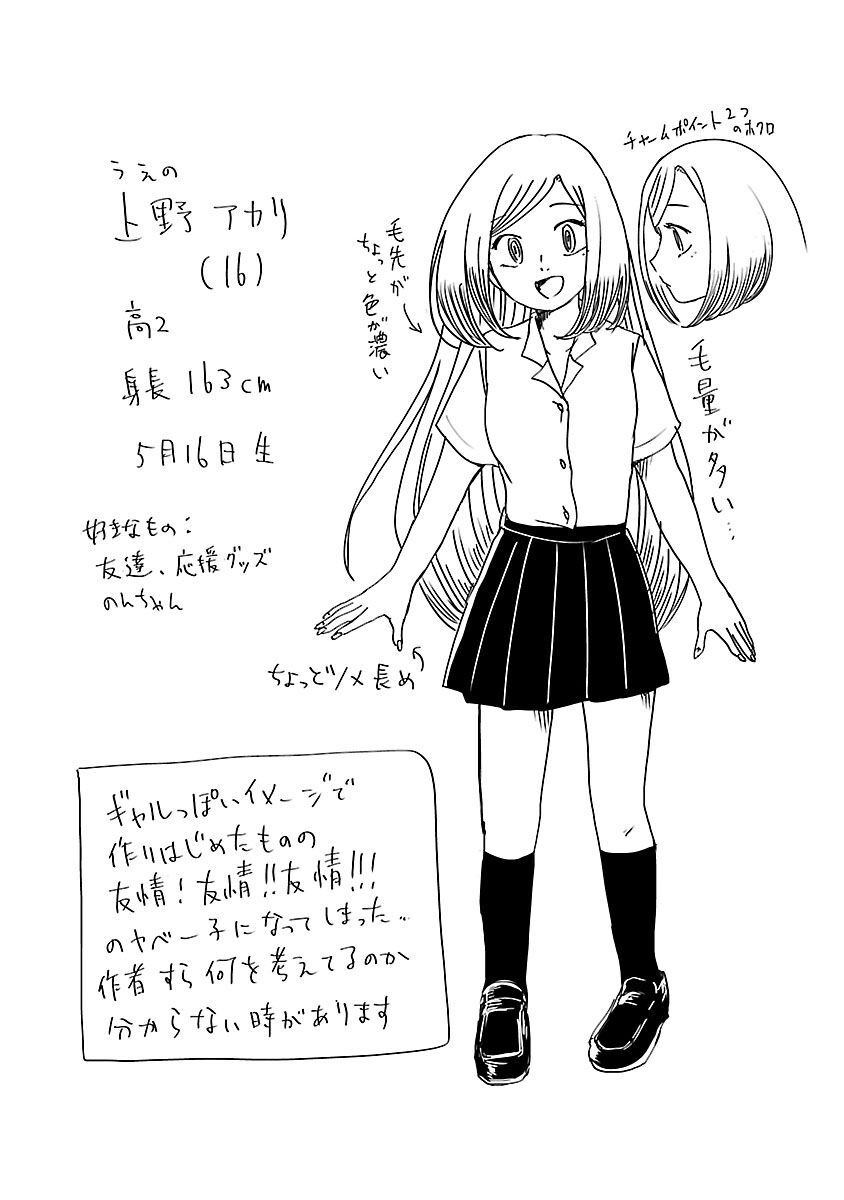 うえの
上野 アカリ
(16)
高2
身長 163cm
5月16日生
好きなもの:
友達、応援グッズ
のんちゃん
チャームポイント2つ
のホクロ
毛先が
ちょっと色が濃い
毛量が多い…
ちょっとツメ長め
ギャルっぽいイメージで
作りはじめたものの
友情!友情!!友情!!!
のヤベー子になってしまった…
作者すら何を考えてるのか
分からない時があります